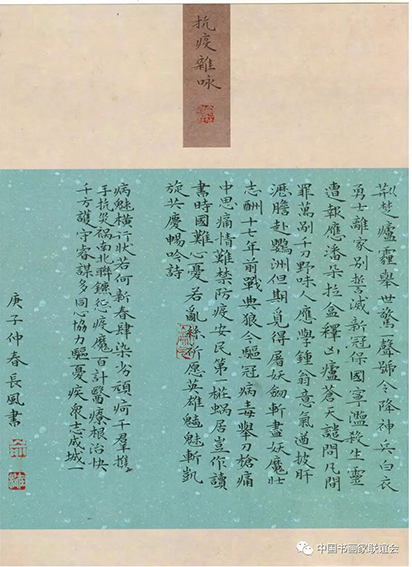 抗疫雜咏
荆楚癘霾舉世驚一聲號令降神兵白衣
勇士離家别誓滅新冠保國寧濫殺生靈
遭報應潘朵拉盒釋凶癘蒼天詰問凡間
罪萬剮千刀野味人應學鍾翁意氣遒披肝
瀝膽赴鸚洲但期覓得屠妖劍斬盡妖魔壯
志酬十七年前戰典狼今驅冠病毒舉刀槍痛
中思痛情難禁防疫安民第一樁蝸居豈作讀
書時國難心憂若亂祈愿英雄魑魅斬凱
旋共慶暢吟詩
病魅横行状若何新春肆染劣頑疴千羣携
手抗災禍南北聯鑣惩疫魔百計醫療根治快
千方護守睿謀多同心協力驅憂疫衆志成城一
庚子仲春長風書
中国书画家联谊会